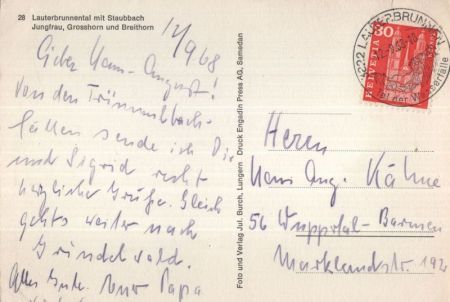 28 Lauterbrunnental mit Staubbach
Jungfrau, Grosshorn und Breithorn
12/9/68
Lieber Hans-August!
Von den Trümmelbach-
fällen sende ich Dir
und Sigrid recht
herzliche Grüße. Gleich
gehts weiter nach
Grindelwald.
Alles Gute. Euer Papa
Foto und Verlag Jul. Burch, Lungern Druck Engadin Press AG, Samedan
3822 LAUTERBRUNNEN
Tal der Wasserfälle
30
HELVETIA
Herrn
Hans Aug. Kähne
56 Wuppertal-Barmen
Marklandstr. 192